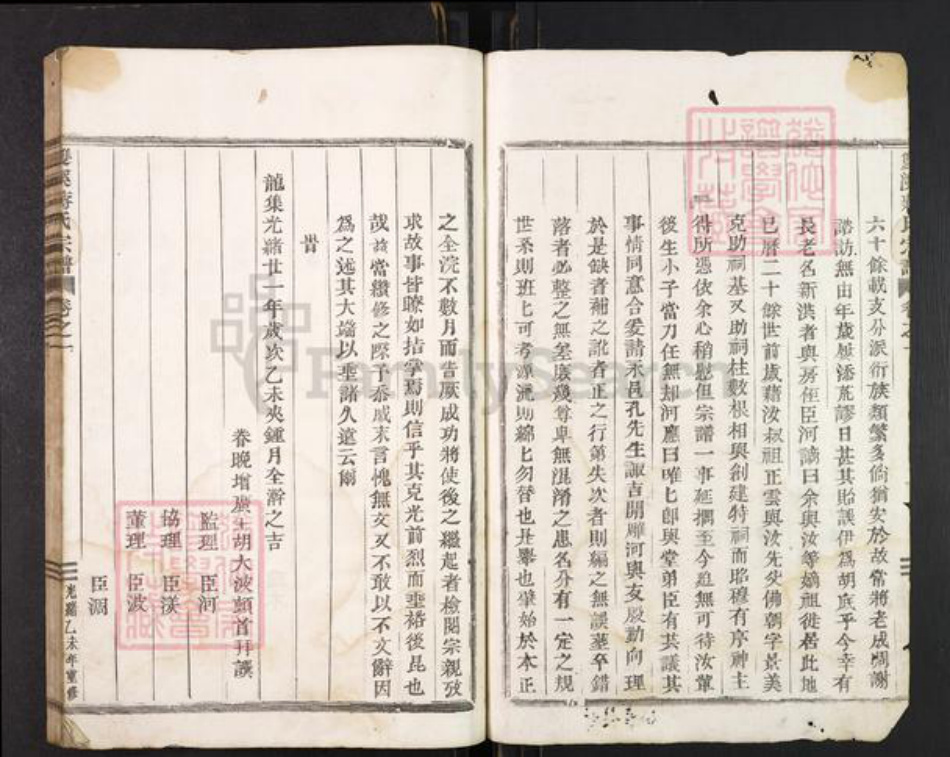 六十餘載支分派衍族類繁多倘猶安於故常將老成凋謝
諮訪無由年歲愈添荒謬日甚其貽誤伊爲胡底乎今幸有
長老名新洪者與房侄臣河議曰余與汝等嫡祖徙居此地
已曆二十餘世前歲藉汝叔祖正雲與汝先父佛朝字景美
克助祠基又助祠柱數根相與創建特祠而昭穆有序神主
得所憑依余心稍慰但宗譜一事延擱至今迫無可待汝輩
後生小子當力任無却河應曰唯匕即與堂弟臣有其議其
事情同意合爰請永邑孔先生諏吉開雕河與友殷勤向理
於是缺者補之訛者正之行第失次者則編之無誤墓卒錯
落者必整之無差庶幾尊卑無混淆之患名分有一定之規
世系則班匕可考源流則綿匕勿替也是舉也肇始於本正
之全浣不數月而告厥成功將使後之繼起者檢閱宗親攷
求故事皆瞭如指掌焉則信乎其克光前烈而垂裕後昆也
哉茲當纘修之際予忝戚末言愧無文又不敢以不文辭因
爲之述其大端以垂諸久遠云爾
旹
龍集光緒廿一年歲次乙未夾鍾月全澣之吉
眷晚增廣生胡大波頓首拜譔
監理 臣河
協理 臣漢
董理 臣波
臣淵
宗譜 卷之一
光緒乙未年重修
FamilySearch